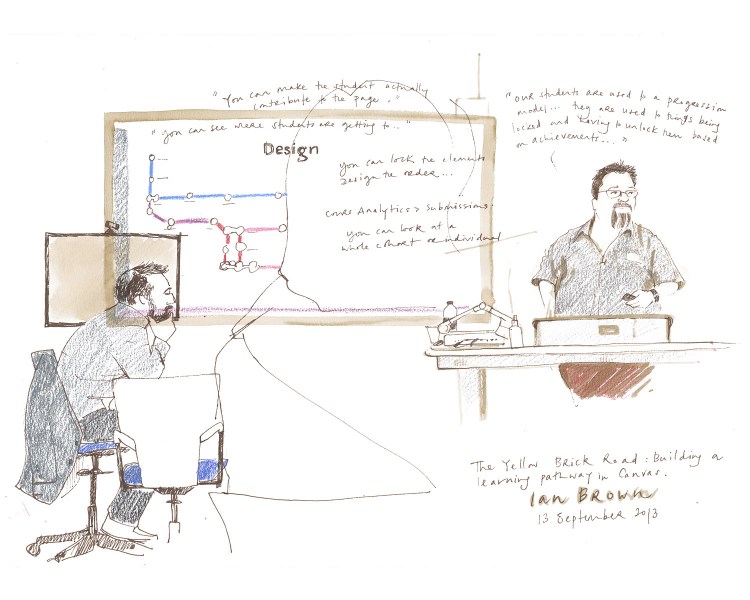 "You can make the student actually
contribute to the page."
"you can see where students are getting to.."
Design
you can lock the elements
design the order...
Course Analytics > Submissions.
you can look at a
whole cohort or individual
"our students are used to a progression
model... they are used to things being
locked and having to unlock them based
on achievements..."
The Yellow Brick Road : Building a
learning pathway in Canvas.
Ian Brown
13 September 2013